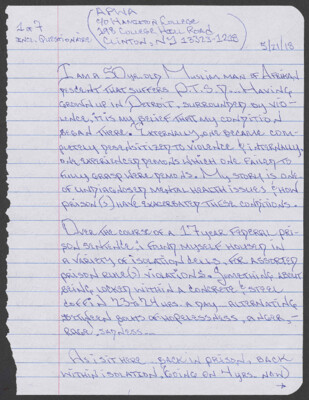 1 of 7
Incl. Questionnaire
APWA
c/o Hamilton College
198 College Hill Road
Clinton, NY 13323-1218
5/21/18
I am a 50 year old Muslim man of African
descent that suffers P.T.S.D... Having
grown up in Detroit, surrounded by vio-
lence, it is my belief that my condition
began there. Externally, one became com-
pletely desensitized to violence & internally,
one experienced demons which one failed to
fully grasp were demons. My story is one
of undiagnosed mental health issues & how
prison(s) have exacerbated these conditions.
Over the course of a 17 year federal pri-
son sentence I found myself housed in
a variety of isolation cells, for assorted
prison rule(s) violations. Something about
being locked within a concrete & steel
coffin 23 to 24 hrs. a day - alternating
between bouts of hopelessness, anger,
rage, sadness...
As I sit here, back in prison, back
within isolation, (going on 4 yrs. now)